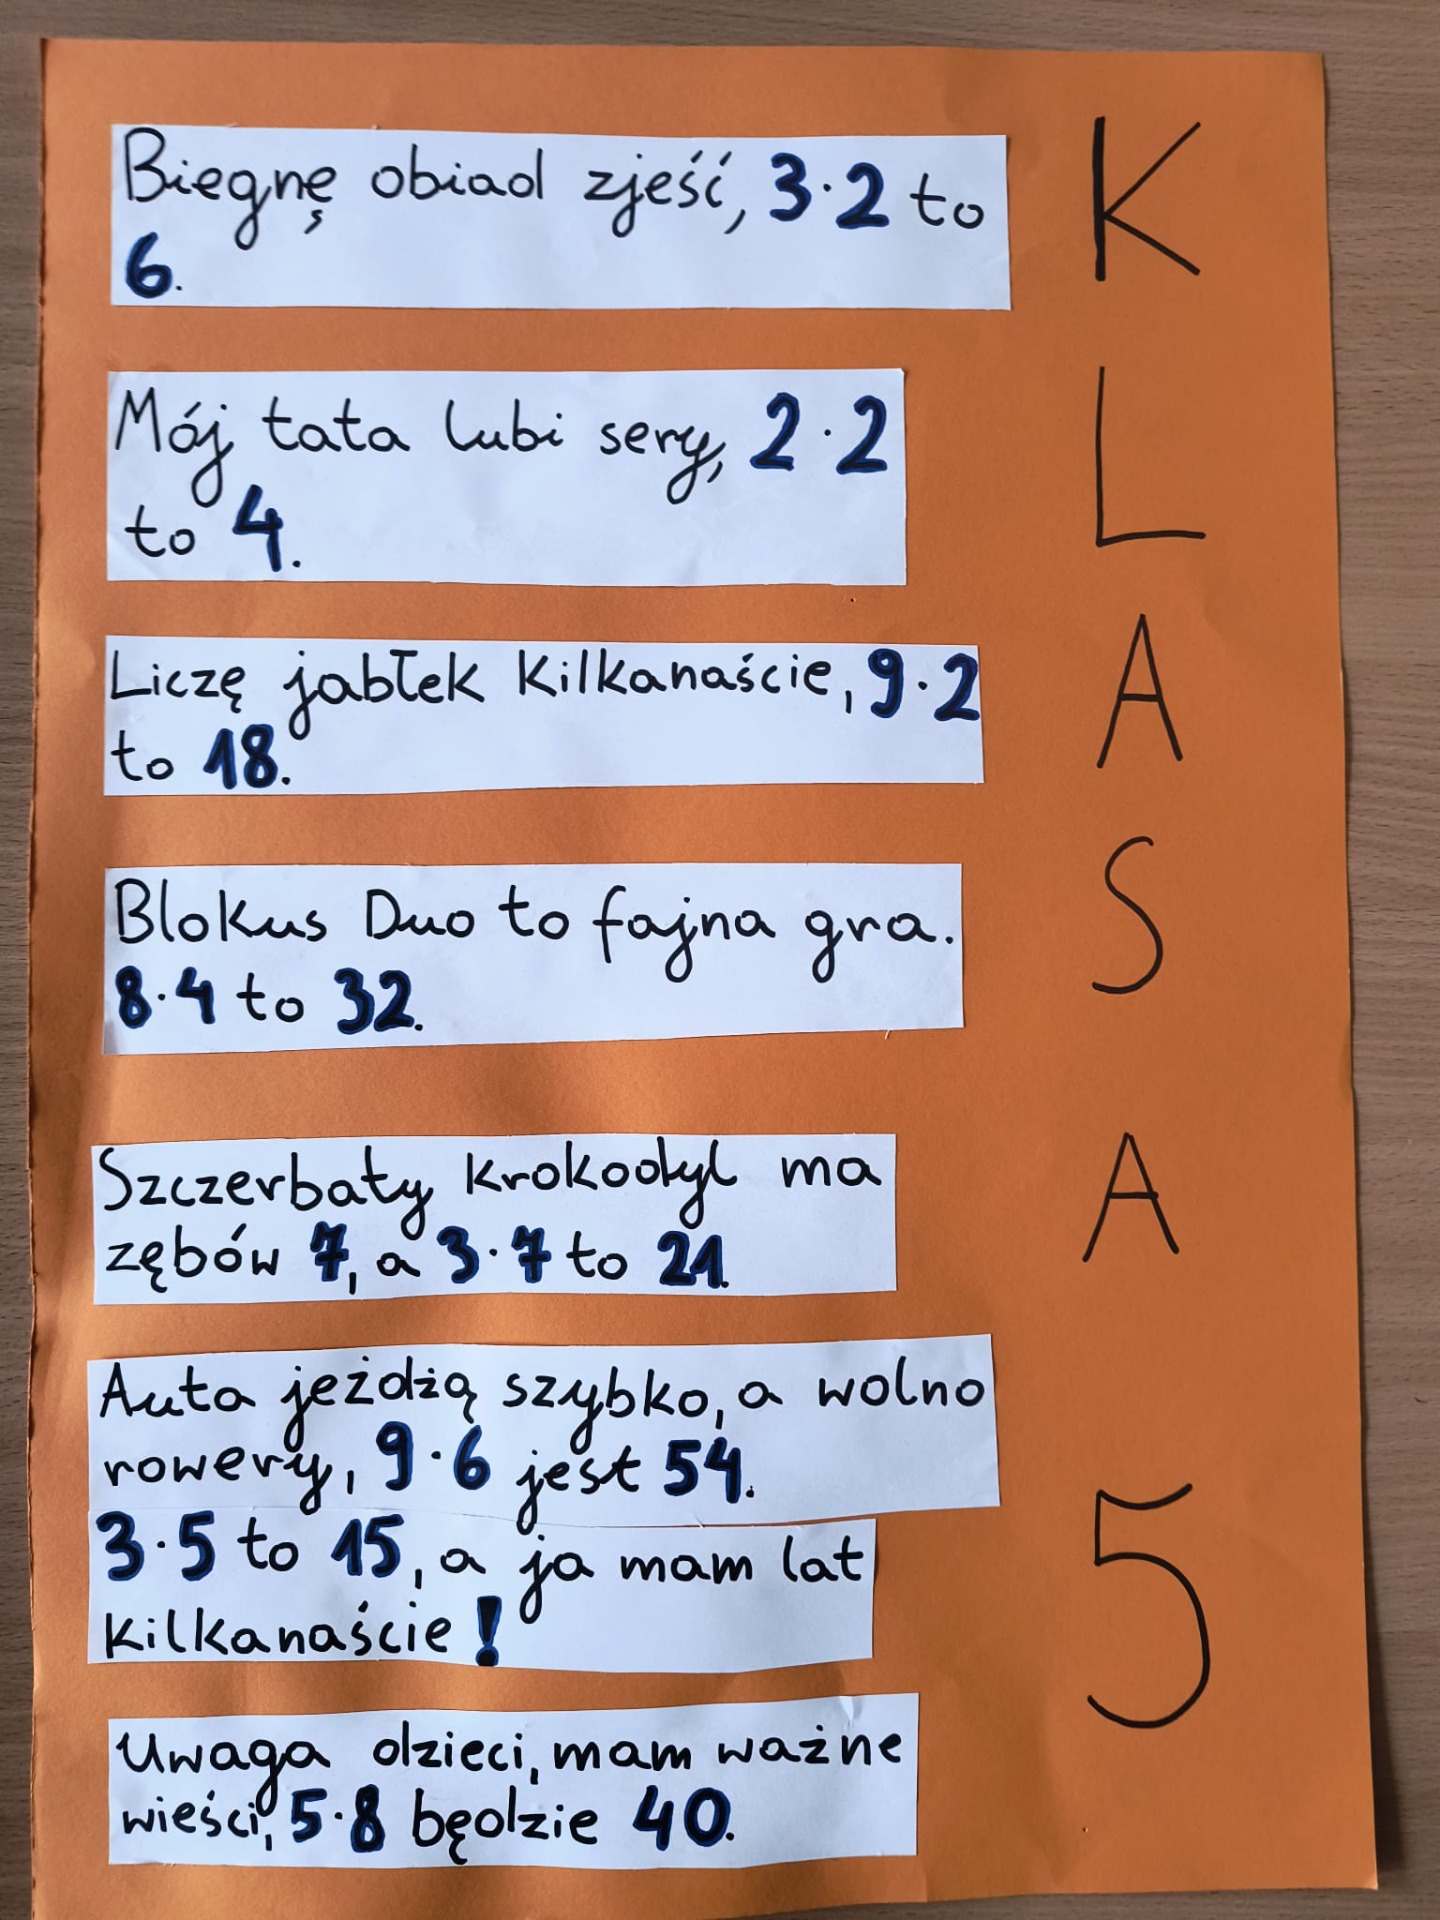 Biegnę obiad zjeść, 3·2 to
6.
Mój tata lubi sery, 2·2
to 4.
Liczę jabłek kilkanaście, 9·2
to 18.
Blokus Duo to fajna gra.
8·4 to 32.
Szczerbaty krokodyl ma
zębów 7, a 3·7 to 21.
Auta jeżdżą szybko, a wolno
rowery, 9·6 jest 54.
3·5 to 15, a ja mam lat
kilkanaście!
Uwaga dzieci, mam ważne
wieści, 5·8 będzie 40.
K
L
A
S
A
5